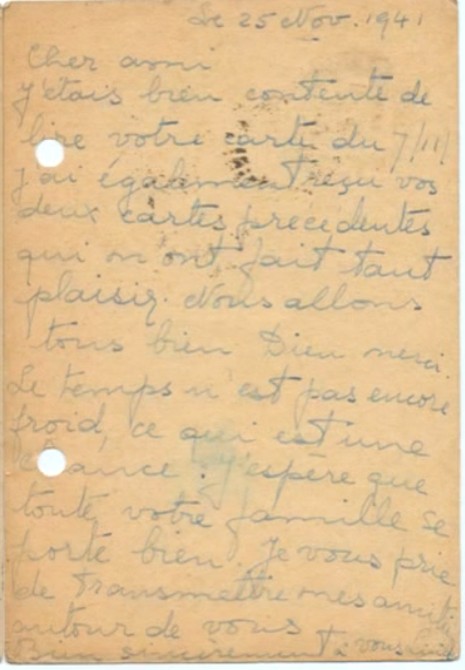 Le 25 Nov. 1941
Cher ami
j'étais bien contente de
lire votre carte du 7/11/
j'ai également reçu vos
deux cartes precedentes
qui m'ont fait tant
plaisir. Nous allons
tous bien Dieu merci.
Le temps n'est pas encore
froid, ce qui est une
chance. J'espère que
toute votre famille se
porte bien. Je vous prie
de transmettre mes amitiés
autour de vous
Bien sincèrement à vous